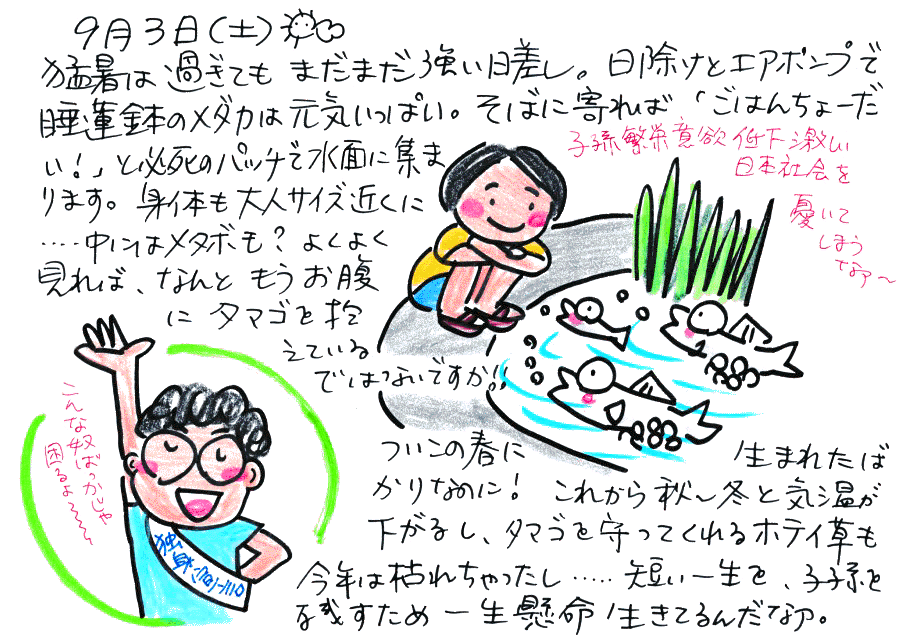 9月3日(土)
猛暑は過ぎても まだまだ強い日差し。日除けとエアポンプで
睡蓮鉢のメダカは元気いっぱい。そばに寄れば「ごはんちょーだ
い!」と必死のパッチで水面に集ま
ります。身体も大人サイズ近くに
‥‥中にはメタボも?よくよく
見れば、なんと もうお腹
に タマゴを抱
えている
ではないですか!!
子孫繁栄意欲低下激しい
日本社会を
憂いて
しまう
なァ～
こんな奴ばっかしじゃ
困るよ～～～
独身
ついこの春に 生まれたば
かりなのに! これから秋～冬と気温が
下がるし、タマゴを守ってくれるホテイ草も
今年は枯れちゃったし‥‥‥ 短い一生を、子子孫を
残すため 一生懸命 生きてるんだなァ。